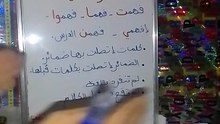 فهمت . فهما . فهموا .
إفهمي . فهمن الدرس .
كلمات إتصلت بها ضمائر .
الضمائر إتصلت بكلمات قبلها
لم تنفرد